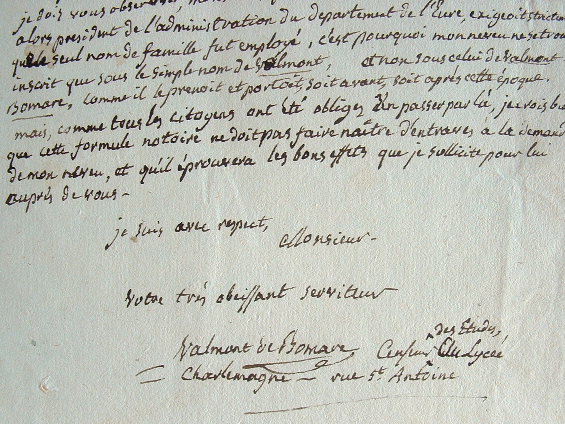 je dois vous observer,
alors president de l'administration du departement de l'Eure, exigeoit strictem
que le seul nom de famille fut employé, c'est pourquoi mon neveu ne se trou
inscrit que sous le simple nom de Valmont, et non sous celui de Valmont
Bomare, comme il le prenoit et portoit, soit avant, soit après cette époque.
mais, comme tous les citoyens ont été obligez d'en passer par là, je crois bie
que cette formule notoire ne doit pas faire naître d'entraves à la demand
de mon neveu, et qu'il éprouvera les bons effets que je sollicite pour lui
auprès de vous -
je suis avec respect,
Monsieur -
Votre très obeissant serviteur
des Etudes,
Valmont de Bomare, Censeur du Lycée
Charlemagne - rue St. Antoine